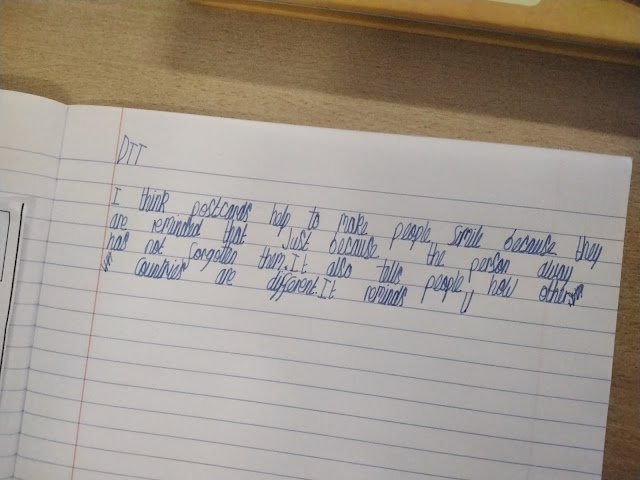 DTT
I think postcards help to make people smile because they
are reminded that just because the person away
has not forgotten them. It also tells people how others
countries are different. It reminds